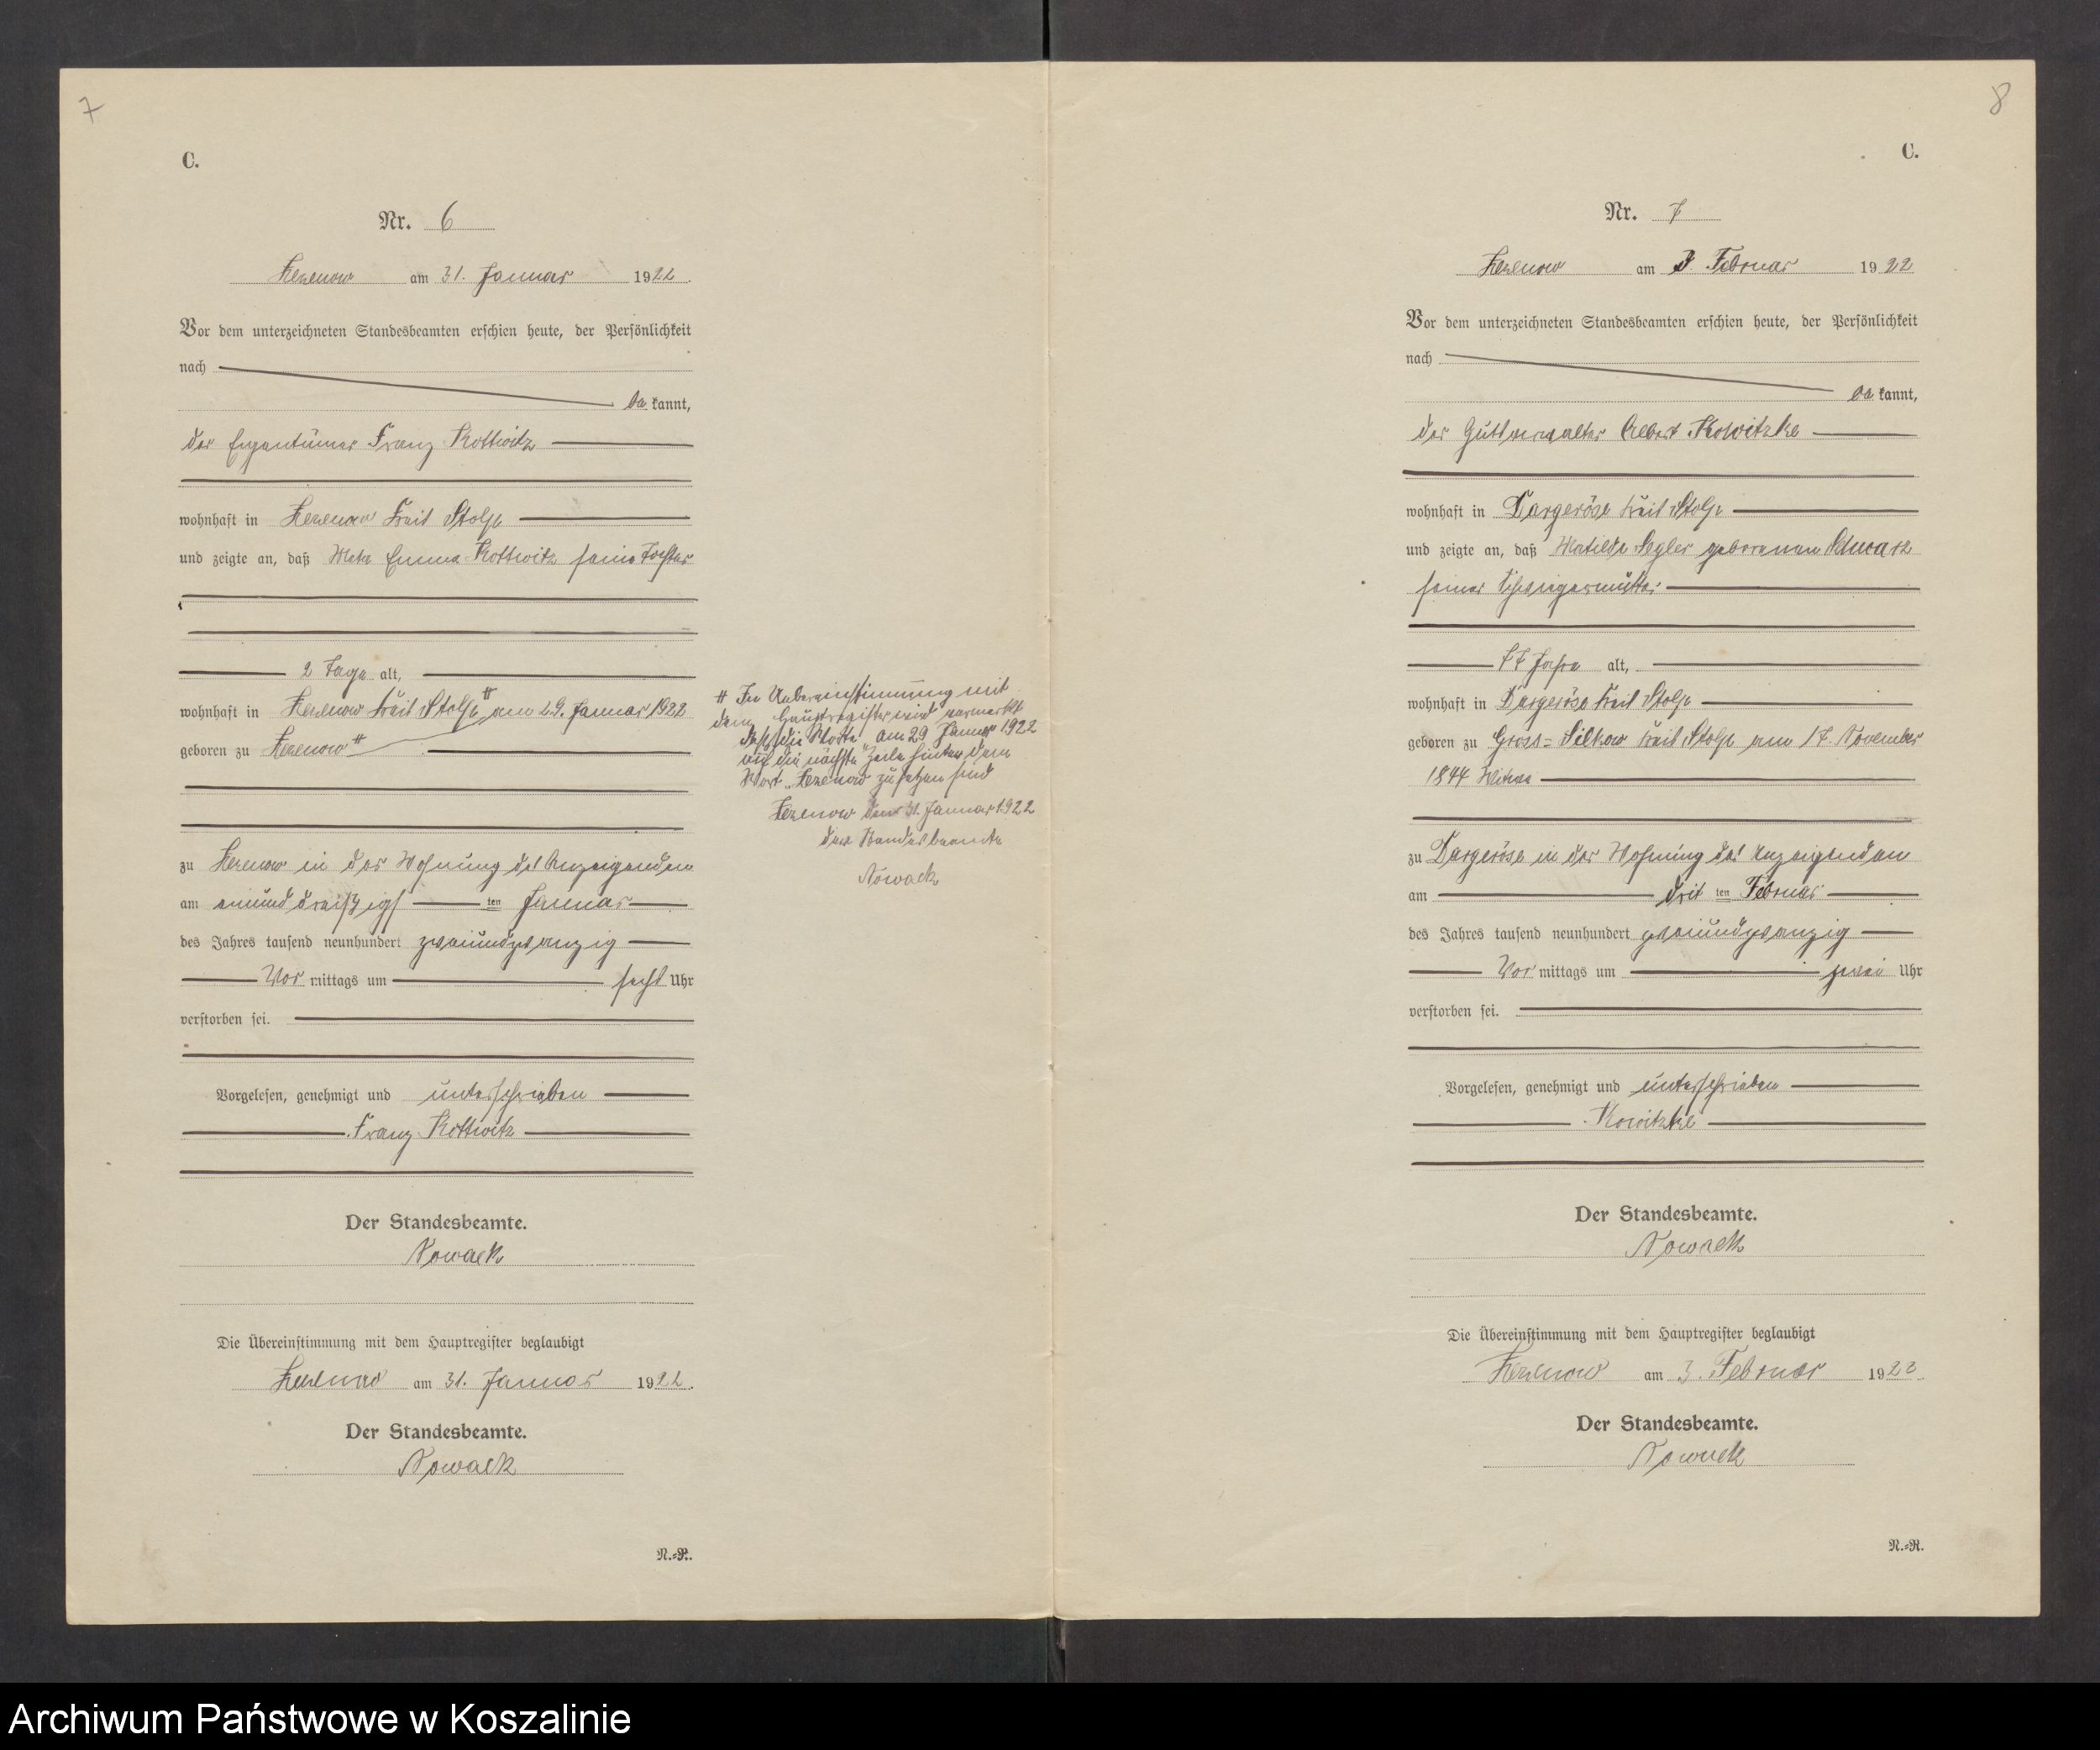 7
C.
Nr. 6
Zezenow am 31. Januar 1922.
Vor dem unterzeichneten Standesbeamten erschien heute, der Persönlichkeit
nach
be kannt,
der Eigentümer Franz Kottwitz
wohnhaft in Zezenow Kreis Stolp
und zeigte an, daß Meta Emma Kottwitz seine Tochter
2 Tage alt,
wohnhaft in Zezenow Kreis Stolp # am 29. Januar 1922
geboren zu Zezenow #
zu Zezenow in der Wohnung des Anzeigenden
am einunddreißigs ten Januar
des Jahres tausend neunhundert zweiundzwanzig
Vor mittags um sechs Uhr
verstorben sei.
Vorgelesen, genehmigt und unterschrieben
Franz Kottwitz
Der Standesbeamte.
Nowack
Die Übereinstimmung mit dem Hauptregister beglaubigt
Zezenow am 31. Januar 1922.
Der Standesbeamte.
Nowack
N.=R.
# In Uebereinstimmung mit
dem Hauptregister wird vermerkt
daß die Worte "am 29 Januar 1922
auf die nächste Zeile hinter dem
Wort "Zezenow zu setzen sind
Zezenow den 31. Januar 1922
der Standesbeamte
Nowack
8
C.
Nr. 7
Zezenow am 3 Februar 1922
Vor dem unterzeichneten Standesbeamten erschien heute, der Persönlichkeit
nach
be kannt,
der Gutsverwalter Albert Kowitzke
wohnhaft in Dargeröse Kreis Stolp
und zeigte an, daß Matilde Segler geborenen Schwarz
seiner Schwiegermutter
77 Jahre alt,
wohnhaft in Dargeröse Kreis Stolp
geboren zu Gross=Silkow Kreis Stolp am 17. November
1844 Witwe
zu Dargeröse in der Wohnung des Anzeigenden
am drit ten Februar
des Jahres tausend neunhundert zweiundzwanzig
Vor mittags um zwei Uhr
verstorben sei.
Vorgelesen, genehmigt und unterschrieben
Kowitzke
Der Standesbeamte.
Nowack
Die Übereinstimmung mit dem Hauptregister beglaubigt
Zezenow am 3. Februar 1922
Der Standesbeamte.
Nowack
N.=R.
Archiwum Państwowe w Koszalinie